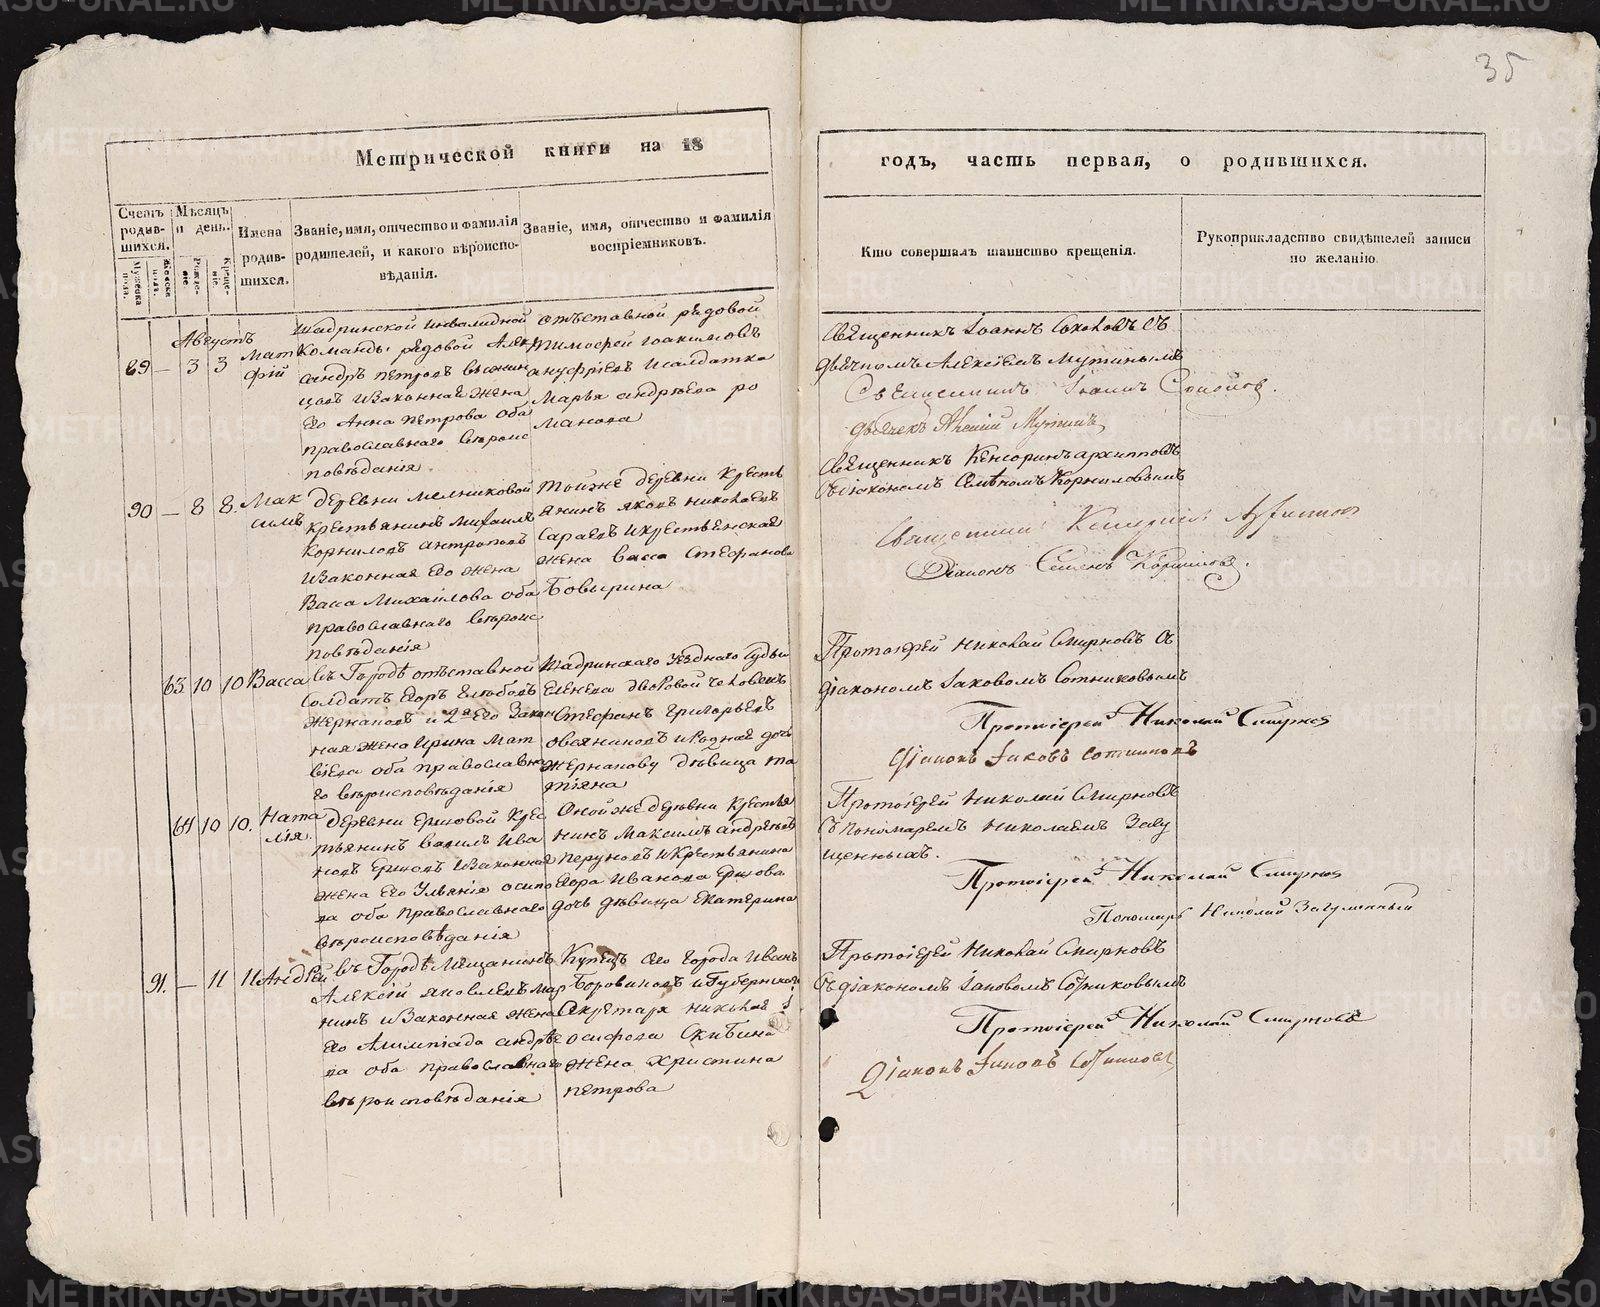 35
Метрической книги на 18
годъ, часть первая, о родившихся.
Счетъ родившихся.
Мужеска пола.
Женска пола.
Мѣсяцъ и день.
Рожденіе.
Крещеніе.
Имена родившихся.
Званіе, имя, отчество и фамилія
родителей, и какого вѣроиспо-
вѣданія.
Званіе, имя, отчество и фамилія
воспріемниковъ.
Кто совершалъ таинство крещенія.
Рукоприкладство свидѣтелей записи
по желанію
Августъ
89 — 3 3 Мат
фій
Шадринской инвалидной
команды рядовой Алек
сандръ Петровъ
и законная жена
его Анна Петрова оба
православнаго вѣроис
повѣданія
отъставной рядовой
Тимофей Іоакимовъ
Ануфріевъ и салдатка
Марья Андрѣева Ро
манова
Священникъ Іоаннъ Соколовъ съ
дьячкомъ Алексѣемъ Мутинымъ
Священникъ Іоаннъ Соколов.
дьячекъ Алексій Мутинъ
90 — 8 8. Мак
симъ
Деревни Мельниковой
крестьянинъ Михаилъ
Корниловъ Антроповъ
и законная его жена
Васса Михайлова оба
православнаго вѣроис
повѣданія
тойже деревни кресть
янинъ Яковъ Николаевъ
Сараевъ и крестьянская
жена Васса Стефанова
Бовырина
Священникъ Кенсоринъ Архипповъ
съ діакономъ Семеномъ Корниловымъ
Священникъ Кенсоринъ Архиппов
Діаконъ Семенъ Корнилов.
63 10 10 Васса
въ Городѣ отъставной
солдатъ Егоръ Глѣбовъ
Жернаковъ и 2я его закон
ная жена Ирина Мат
вѣева оба православна
го вѣроисповѣданія
Шадринскаго Уезднаго Судьи
дворовой человекъ
Стефанъ Григорьевъ
Овсянниковъ и родная дочь
Жернакову дѣвица Та
тіяна
Протоіерей Николай Смирновъ съ
діакономъ Іаковомъ Сотниковымъ
Протоіерей Николай Смирнов
Діаконъ Іаковъ Сотниковъ
64 10 10. Ната
лія.
Деревни Ершовой крес
тьянинъ Василъ Ива
новъ Ершовъ и законная
жена его Ульянія Осипо
ва оба православнаго
вѣроисповѣданія
Оной же деревни крестья
нинъ Максимъ Андреевъ
Перуновъ и крестьянина
Егора Иванова Ершова
дочь дѣвица Екатерина
Протоіерей Николай Смирновъ
съ пономаремъ Николаемъ Загу
Протоіерей Николай Смирнов
Пономарь Николай
91. — 11 11 Андрей
въ Городѣ Мѣщанинъ
Алексій Яковлевъ Мар
нинъ и законная жена
его Алимпіада Андрѣе
ва оба православнаго
вѣроисповѣданія
Купецъ сего города Иванъ
Боровиковъ и Губернскаго
Секретаря Николая
Осифова Скибина
жена Христина
Петрова
Протоіерей Николай Смирновъ
съ діакономъ Іаковомъ Сотниковымъ
Протоіерей Николай Смирновъ
Діаконъ Іаковъ Сотниковъ
METRIKI.GASO-URAL.RU